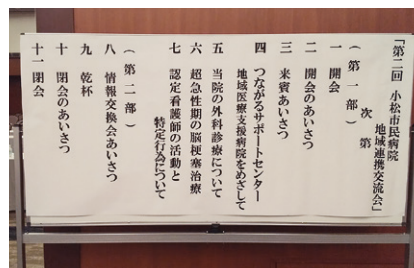 「第二回 小松市民病院
地域連携交流会」
次第
(第一部)
一 開会
二 開会のあいさつ
三 来賓あいさつ
四 つながるサポートセンター
地域医療支援病院をめざして
五 当院の外科診療について
六 超急性期の脳梗塞治療
七 認定看護師の活動と
特定行為について
(第二部)
八 情報交換会あいさつ
九 乾杯
十 閉会のあいさつ
十一 閉会